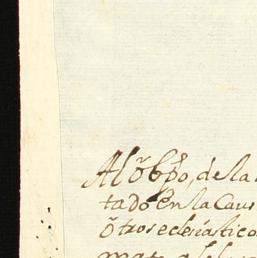 Al óbpo, de la
tado en la Caus
ôtros eclesiástico